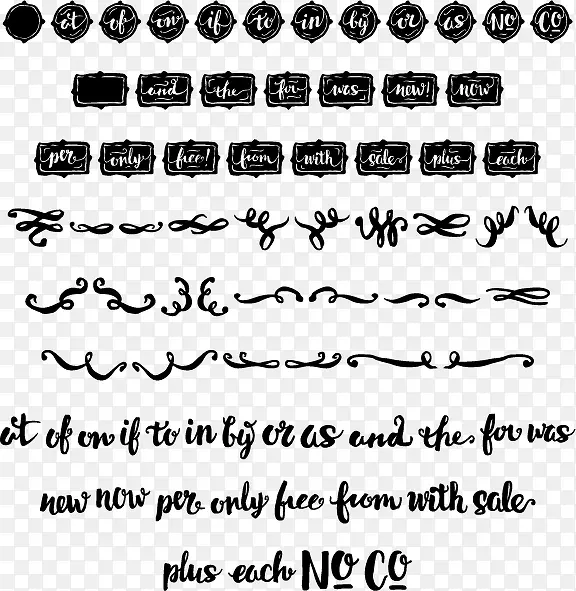 at of on if to in by or as No Co
and the for was new! now
per only free! from with sale plus each
at of on if to in by or as and the for was
new now per only free from with sale
plus each No Co